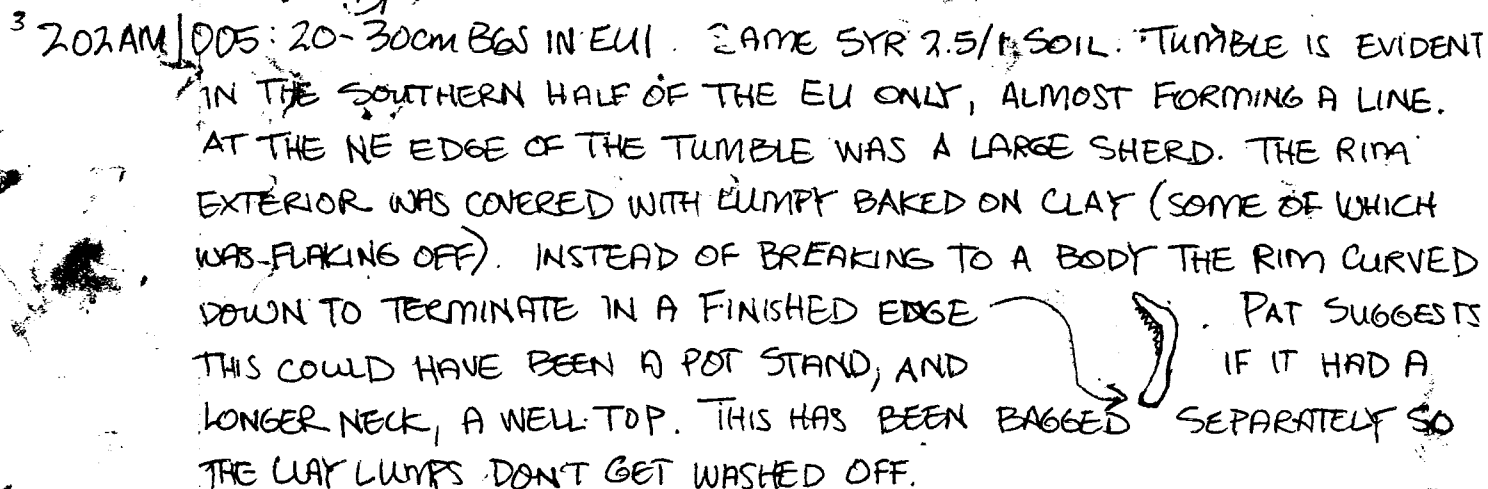 3 202AM|005: 20-30cm BGS IN EU1. SAME 5YR 2.5/1 SOIL. TUMBLE IS EVIDENT
IN THE SOUTHERN HALF OF THE EU ONLY, ALMOST FORMING A LINE.
AT THE NE EDGE OF THE TUMBLE WAS A LARGE SHERD. THE RIM
EXTERIOR WAS COVERED WITH LUMPY BAKED ON CLAY (SOME OF WHICH
WAS FLAKING OFF). INSTEAD OF BREAKING TO A BODY THE RIM CURVED
DOWN TO TERMINATE IN A FINISHED EDGE . PAT SUGGESTS
THIS COULD HAVE BEEN A POT STAND, AND IF IT HAD A
LONGER NECK, A WELL TOP. THIS HAS BEEN BAGGED SEPARATELY SO
THE CLAY LUMPS DON'T GET WASHED OFF.